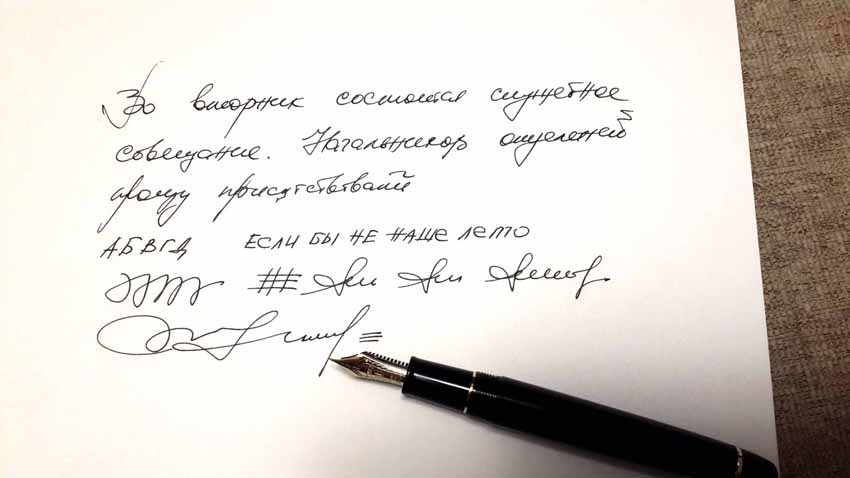 Во вторник состоится служебное
совещание. Начальников отделений
прошу присутствовать
АБВГД ЕСЛИ БЫ НЕ НАШЕ ЛЕТО